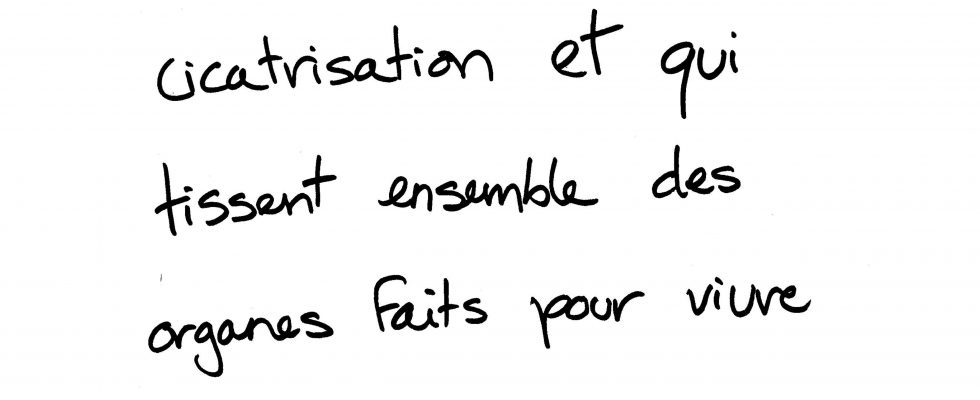 cicatrisation et qui
tissent ensemble des
organes faits pour vivre